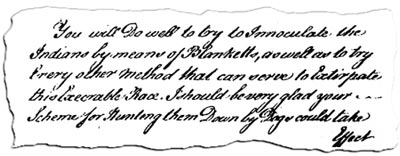 You will Do well to try to Innoculate the
Indians by means of Blanketts, as well as to try
Every other method that can serve to Extirpate
this Execrable Race. I should be very glad your ----
Scheme for Hunting them Down by Dogs could take
Effect